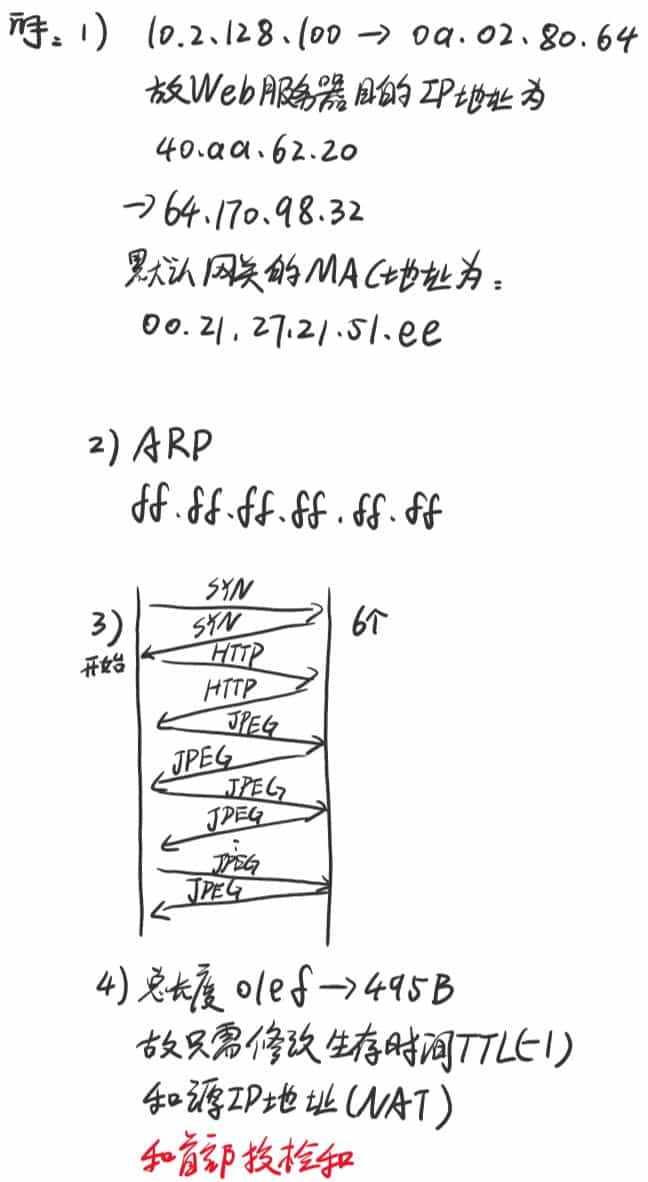 解：1) 10.2.128.100 → 0a.02.80.64
故Web服务器目的IP地址为
40.aa.62.20
→64.170.98.32
默认网关的MAC地址为：
00.21.27.21.51.ee
2) ARP
ff.ff.ff.ff.ff.ff
SYN
3) SYN 6个
开始 HTTP
HTTP
JPEG
JPEG
JPEG
JPEG
⋮
JPEG
JPEG
4) 总长度 01ef→495B
故只需修改生存时间TTL(-1)
和源IP地址(NAT)
和首部校检和